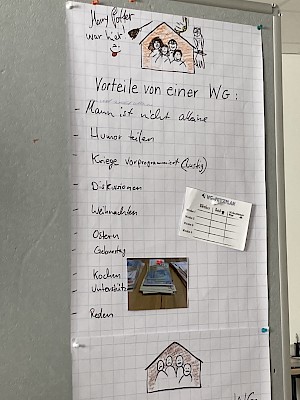 Harry Potter
war hier
Vorteile von einer WG:
- Mann ist nicht alleine
- Humor teilen
- Kriege vorprogrammiert (lustig)
- Diskusionen
- Weihnachten
- Ostern
- Geburtstag
- Kochen
- Unterstütz
- Reden
WG-PUTZPLAN
Küche
Bad
WG